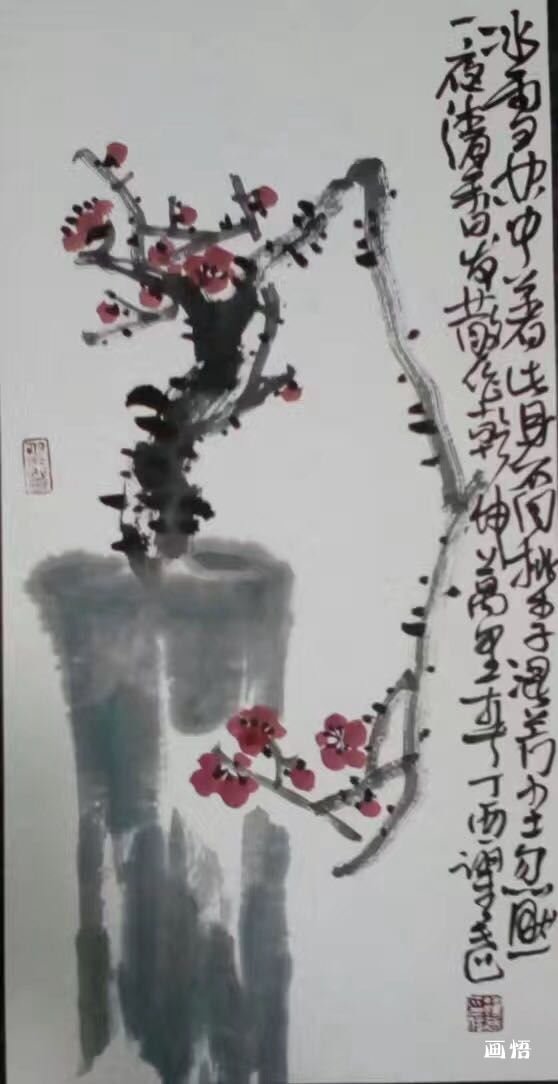 冰雪林中著此身不同桃李混芳尘忽然
一夜清香发散作乾坤萬里春丁酉
画悟